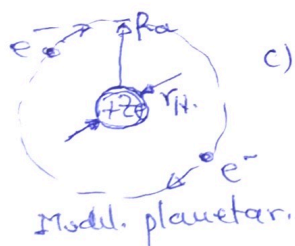 e⁻ Ra
c)
+Ze
rN.
e⁻
Modul. planetar.